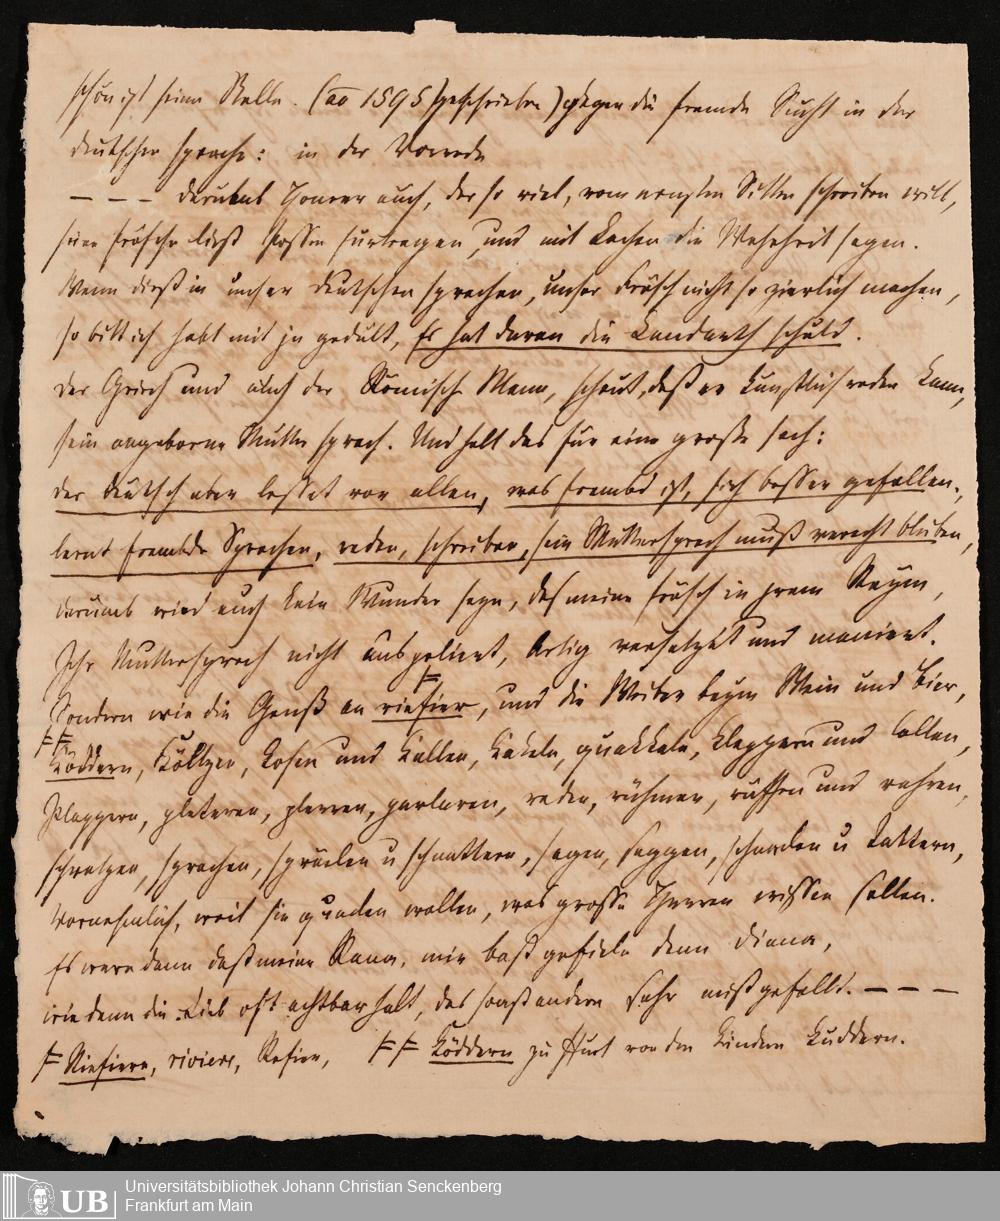 schön ist seine Stelle. (ao 1595 geschrieben) gegen die fremde Sucht in der
deutschen sprache: in der Vorrede
– – – darumb Homer auch, der so viel, vom ernsten Sitten schreiben will,
seine frösche ließ Possen furtragen, und mit Lachen die Wahrheit sagen.
Wenn dieß in unser deutschen sprachen, unser frösch nicht so zierlich machen,
so bitt ich habt mit jn gedult, Es hat daran die Landarth schuld.
Der Griech und auch der Römische Mann, schaut, daß er kunstlich reden kann,
sein angeborne Mutter sprach. Und halt das für eine große sach:
der deutsch aber lesset vor allen, was frembd ist, sich besser gefallen,
lernt frembde Sprachen, reden, schreiben, sein Muttersprach muß veracht bleiben,
darumb wird auch kein Wunder seyn, das meine frösch in jrem Reym,
Jhr Muttersprach nicht ausgeliert, Artig versetzet und moniert.
Sondern wie die Genß an riefier, und die Weiber beym Wein und Bier,
Köddern, Költzen, kosen und kallen, kakeln, quakkeln, kleppern und lallen,
Plappern, pleteren, plerren, parlaren, reden, rühmen, ruffen und rahren,
schwatzen, sprachen, spräcken u schnattern, sagen, saggen, schnarden u tattern,
Vornehmlich, weil sie quaden wollen, was grosse Herren wissen sollen.
Es were denn daß meine Rana, mir baß gefiele denn Diana,
wie denn die Lieb oft achtbar halt, das sonst andern sehr mißgefellt. – – – –
╪ Riefiere, riviere, Refier, ╪╪ Köddern zu Hurt von den Kindern Kuddern.
UB
Universitätsbibliothek Johann Christian Senckenberg
Frankfurt am Main